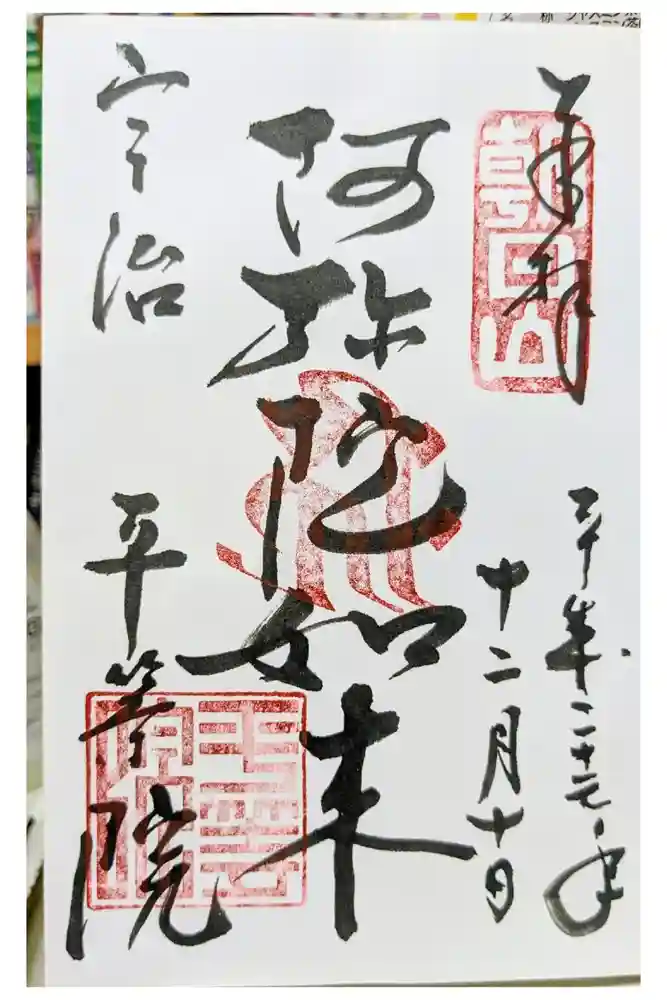 奉拝
朝日山
平成二十
年
十二月十日
阿弥陀如来
宇治
平等院